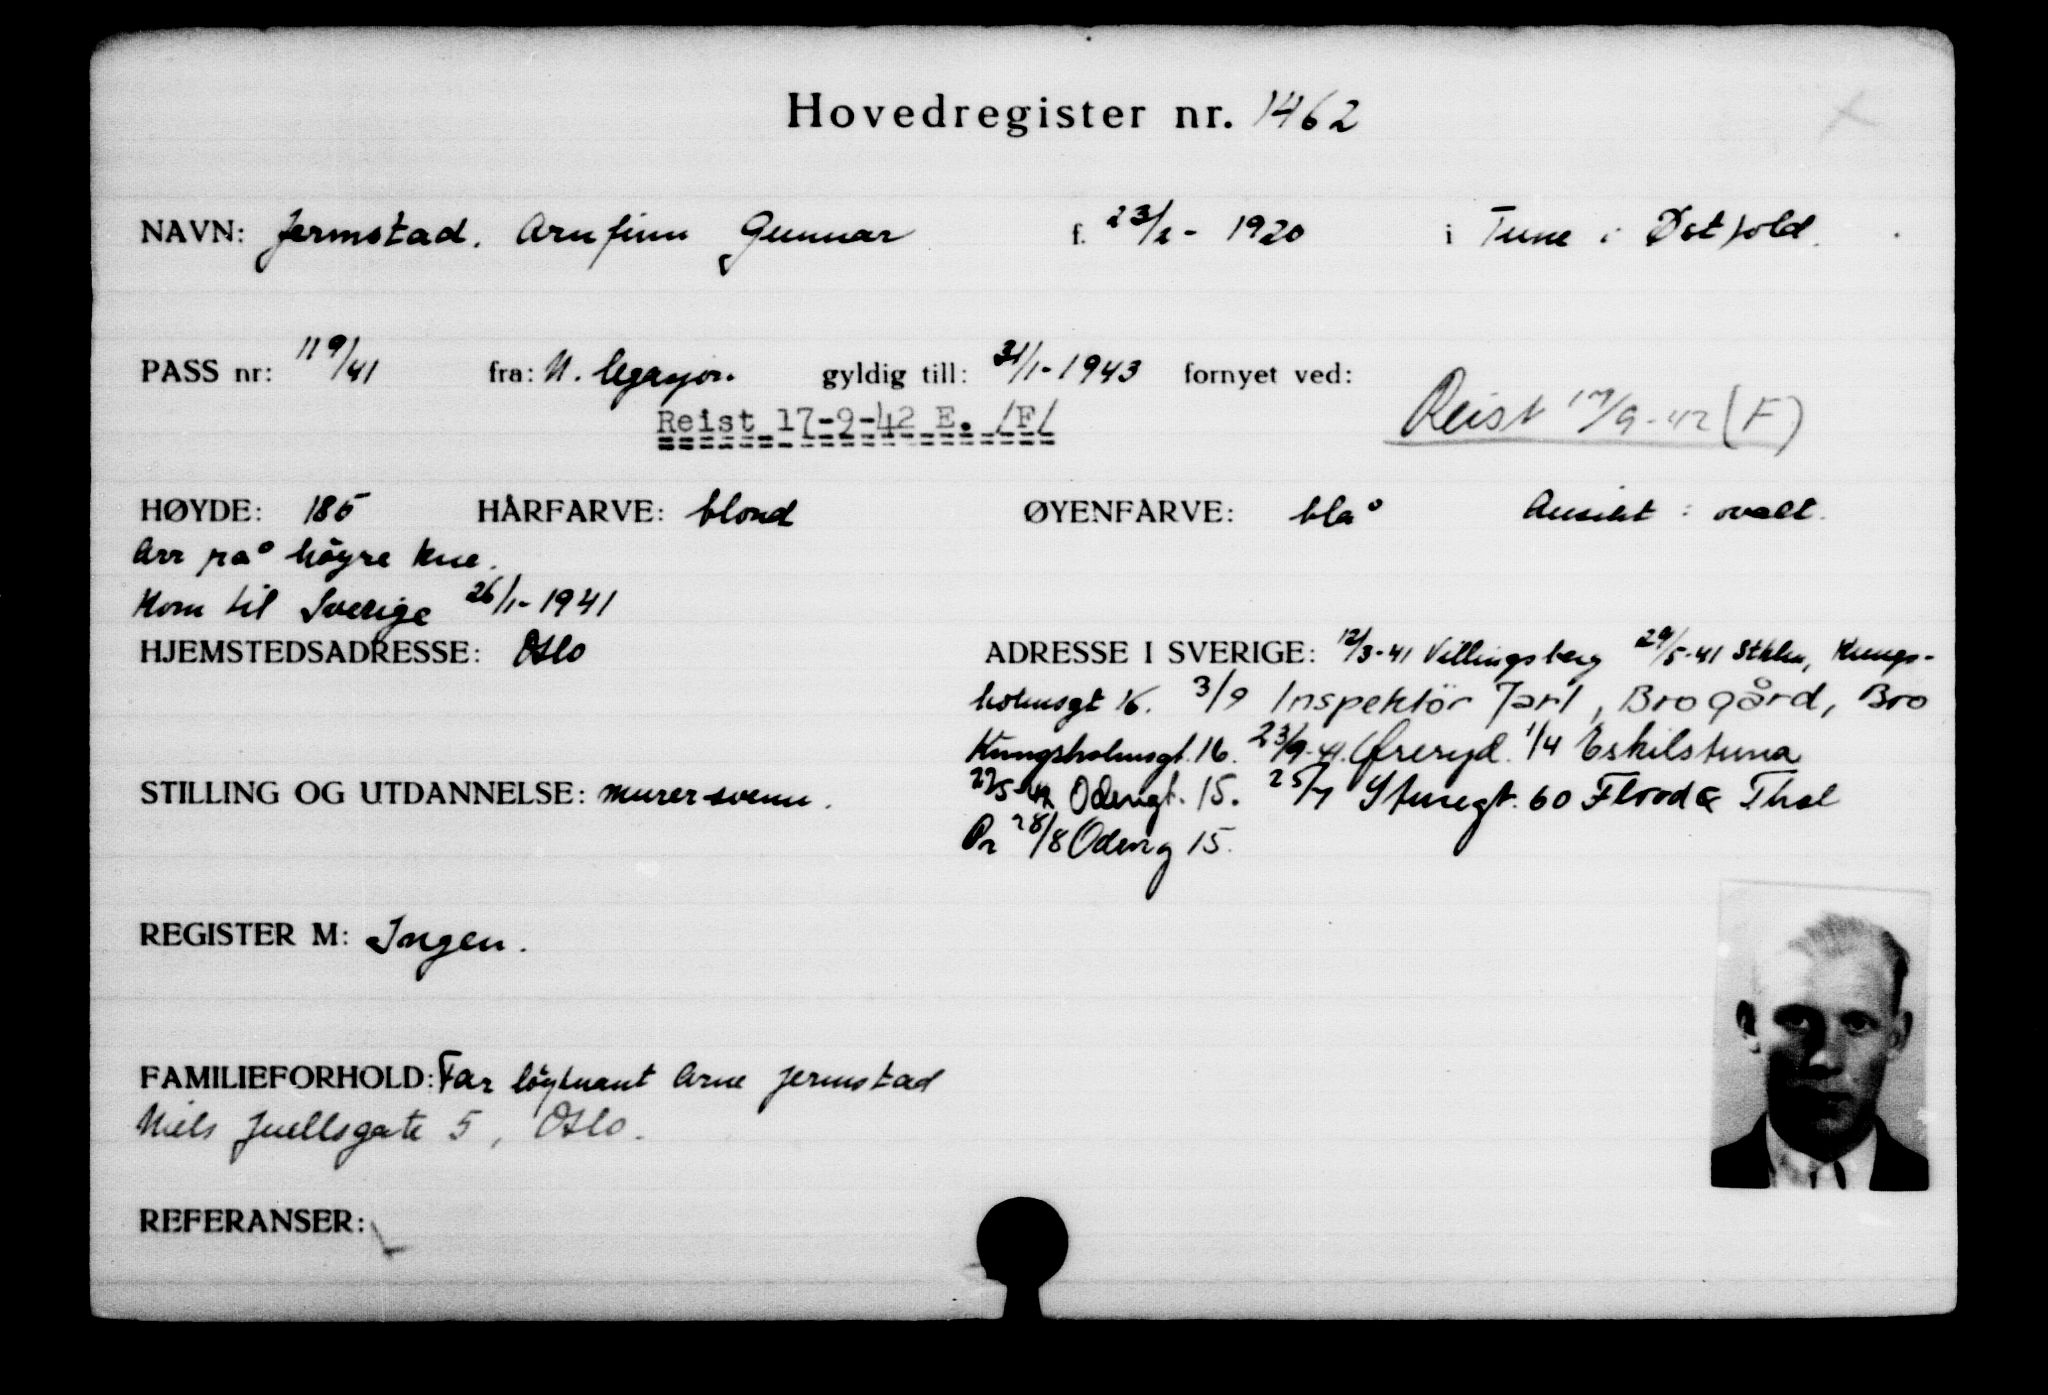 Hovedregister nr. 1462
NAVN: Jermstad. Arnfinn Gunnar f. 23/2 - 1920 i Tune i Østfold.
PASS nr: 119/41 fra: N. legasjon. gyldig till: 31/1-1943 fornyet ved:
Reist 17-9-42 E. /F/ Reist 17/9-42 (F)
HØYDE: 185 HÅRFARVE: blond ØYENFARVE: blå Ansikt : ovalt.
Arr på höyre kne.
Kom til Sverige 26/1-1941
HJEMSTEDSADRESSE: Oslo ADRESSE I SVERIGE: 12/3-41 Villingsberg 29/5-41 Sthlm, Kungs-
holmsgt 16. 3/9 Inspektör Jarl, Brogård, Bro
Kungsholmsgt. 16. 23/9-41. Öreryd. 1/4 Eskilstuna
STILLING OG UTDANNELSE: murersvenn. 22/5-42 Odengt. 15. 25/7 Sturegt. 60 Flood & Thal
28/8 Odeng 15.
REGISTER M: Ingen.
FAMILIEFORHOLD: Far löytnant Arne Jermstad
Niels Juellsgate 5, Oslo.
REFERANSER: